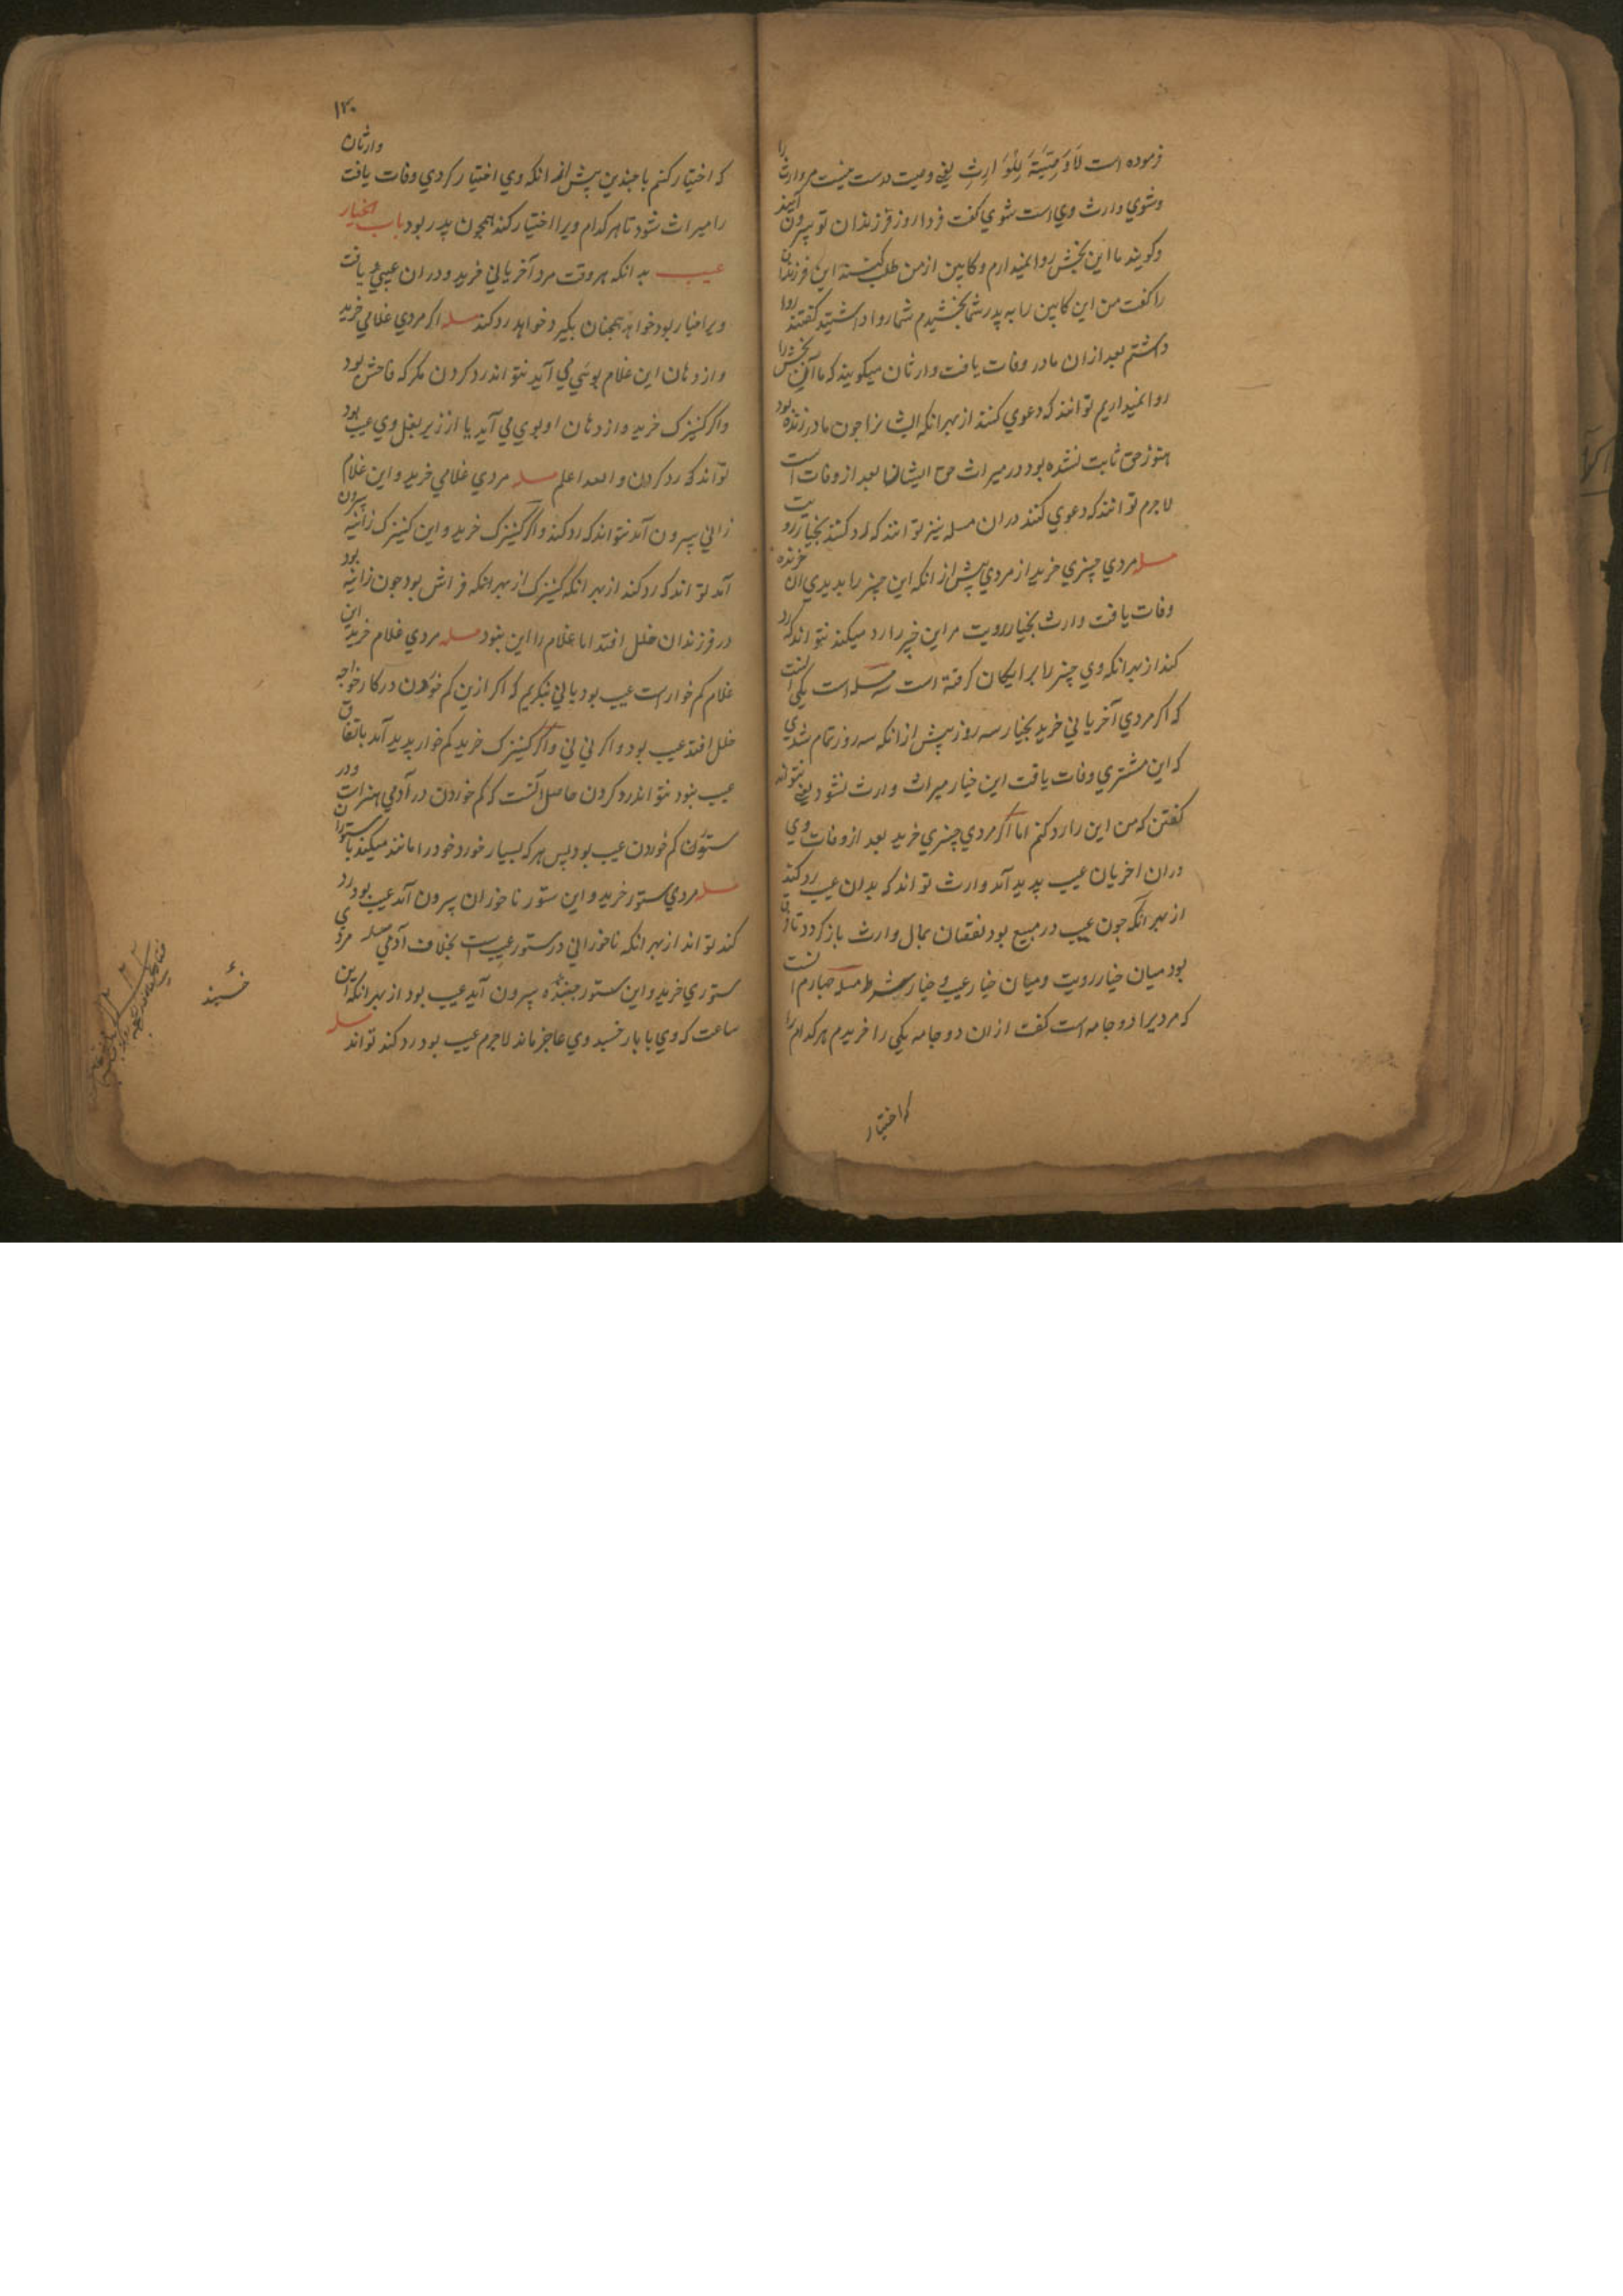 فرموده است لَا وَصِيَّةَ لِلْوَارِثِ يعني وصيت درست نيست مر وارث را
وشوي وارث وي است شوي گفت فردا روز فرزندان تو بيرون آيند
وكويند ما اين بخش روا نميدارم وكابين از من طلب كنند اين فرزندان
را گفت من اين كابين را به پدر شما بخشيدم شما روا داشتيد گفتند روا
داشتم بعد از ان مادر وفات يافت وارثان ميكويند كه ما آن بخش را
روا نميداريم توانند كه دعوي كنند از بهر انكه ايشانرا چون مادر زنده بود
هنوز حق ثابت نشده بود در ميراث حق ايشانرا بعد از وفات است
لاجرم توانند كه دعوي كنند در ان مسله نيز توانند كه رد كنند بخيار رويت
مسله مردي چيزي خريد از مردي پيش از انكه اين چيز را بديدي ان خرنده
وفات يافت وارث بخيار رويت مر اين چيز را رد ميكند نتواند كه رد
كند از بهر انكه وي چيز را برايكان كرفته است سه مسله است يكي انست
كه اكر مردي آخرياني خريد بخيار سه روز پيش از انكه سه روز تمام شدي
كه اين مشتري وفات يافت اين خيار ميراث وارث نشود يعني نتواند
گفتن كه من اين را رد كنم اما اكر مردي چيزي خريد بعد از وفات وي
دران اخريان عيب پديد آمد وارث تواند كه بدان عيب رد كند
از بهر آنكه چون عيب در مبيع بود نقصان بمال وارث باز كردد تا فرق
بود ميان خيار رويت وميان خيار عيب و خيار شرط مسله چهارم انست
كه مرديرا دو جامه است گفت از ان دو جامه يكي را خريدم هر كدام را
كه اختيار
۱۲۰
كه اختيار كنم با چندين پيش از انكه وي اختيار كردي وفات يافت وارثان
را ميراث شود تا هر كدام ويرا اختيار كند همچون پدر بود باب الخيار
عيب بدانكه هر وقت مرد آخرياني خريد ودران عيبي يافت
ويرا خيار بود خواهد همچنان بگيرد خواهد رد كند مسله اكر مردي غلامي خريد
واز دهان اين غلام بوئي مي آيد نتواند رد كردن مكر كه فاحش بود
واكر كنيزك خريد واز دهان او بوي مي آيد يا از زير بغل وي عيب بود
تواند كه رد كردن والله اعلم مسله مردي غلامي خريد واين غلام
زاني بيرون آمد نتواند كه رد كند واكر كنيزك خريد واين كنيزك زانيه بيرون
آمد تواند كه رد كند از بهر انكه كنيزك از بهر انكه فراش بود چون زانيه بود
در فرزندان خلل افتد اما غلام را اين نبود مسله مردي غلام خريد اين
غلام كم خوار است عيب بود يا ني بنكريم كه اكر ازين كم خوردن در كار خواجه
خلل افتد عيب بود واكر ني ني واكر كنيزك خريد كم خوار پديد آمد باتفاق
عيب نبود نتواند رد كردن حاصل آنست كه كم خوردن در آدمي هنر است ودر
ستوران كم خوردن عيب بود پس هر كه بسيار خورد خود را مانند ميكند با ستوران
مسله مردي ستور خريد واين ستور ناخوران بيرون آمد عيب بود رد
كند تواند از بهر انكه ناخوراني در ستور عيب است بخلاف آدمي مسله مردي
ستوري خريد واين ستور خسبنده بيرون آيد عيب بود از بهر انكه اين
ساعت كه وي با بار خسبد وي عاجز ماند لاجرم عيب بود رد كند تواند مسله